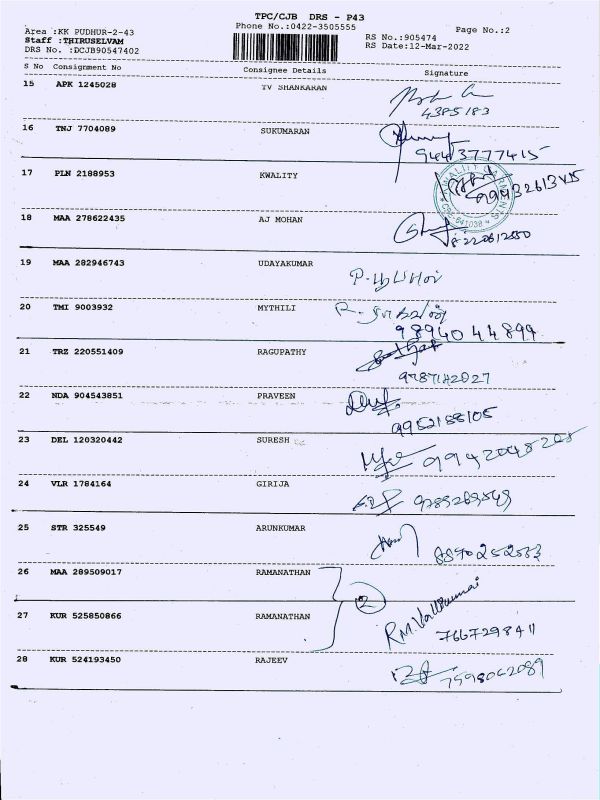 TPC/CJB DRS - P43
Area :KK PUDHUR-2-43 Phone No.:0422-3505555 Page No.:2
Staff :THIRUSELVAM RS No.:905474
DRS No. :DCJB90547402 RS Date:12-Mar-2022
S No Consignment No Consignee Details Signature
15 APK 1245028 TV SHANKARAN
4385183
16 TNJ 7704089 SUKUMARAN
9443777415
17 PLN 2188953 KWALITY
18 MAA 278622435 AJ MOHAN
8220612550
19 MAA 282946743 UDAYAKUMAR
20 TMI 9003932 MYTHILI
9894044899
21 TRZ 220551409 RAGUPATHY
9787142027
22 NDA 904543851 PRAVEEN
9952188105
23 DEL 120320442 SURESH
24 VLR 1784164 GIRIJA
25 STR 325549 ARUNKUMAR
26 MAA 289509017 RAMANATHAN
2
27 KUR 525850866 RAMANATHAN
7667298411
28 KUR 524193450 RAJEEV
7598062089